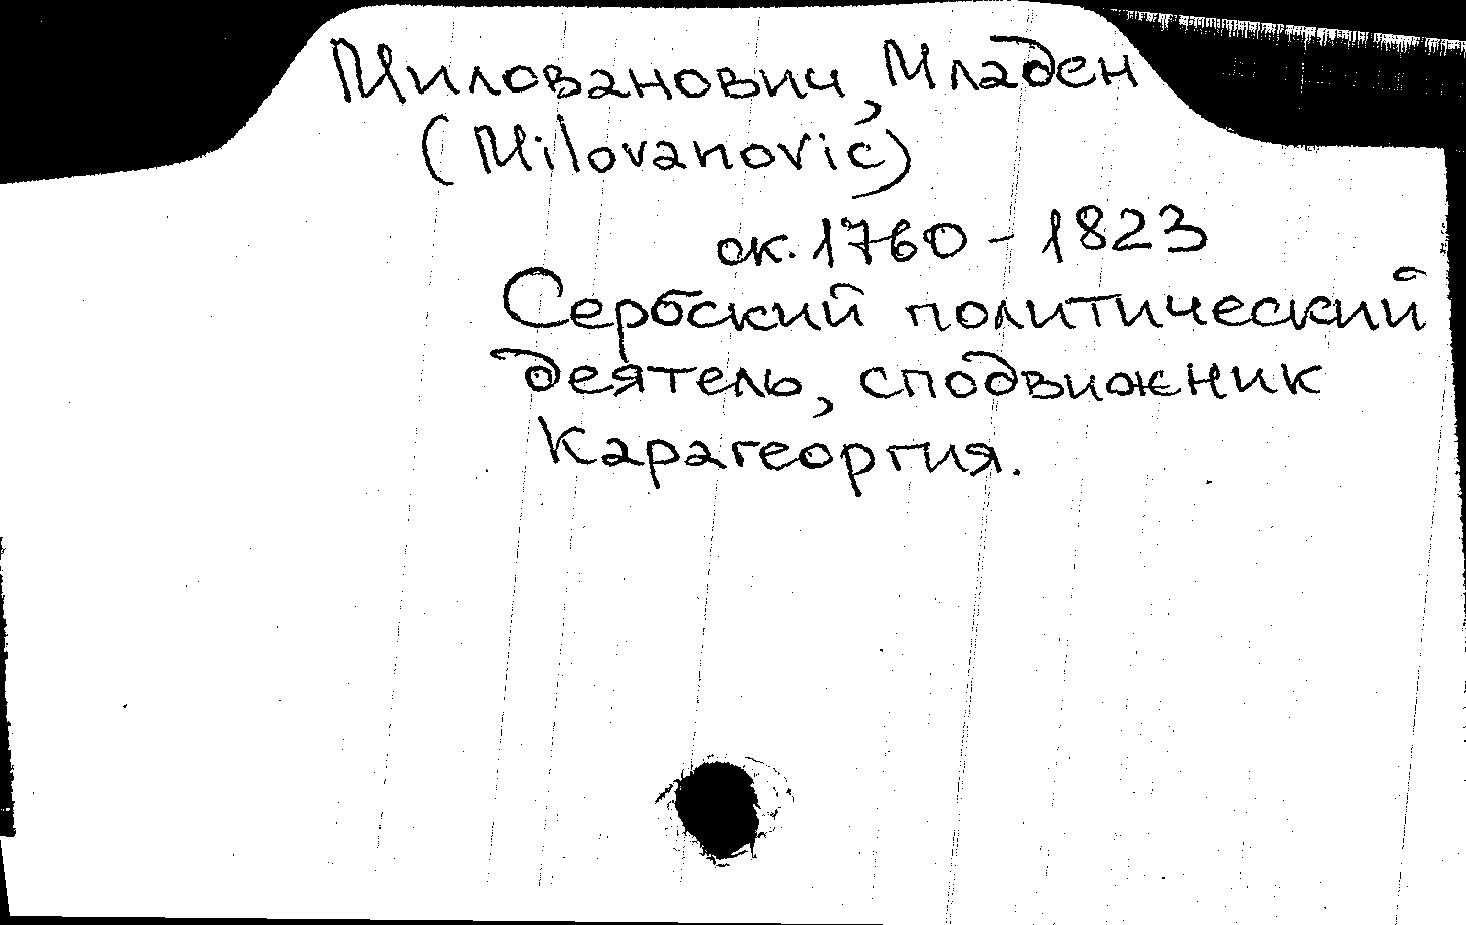 Милованович, Младен
(Milovanović)
ок. 1760 - 1823
Сербский политический
деятель, сподвижник
Карагеоргия.